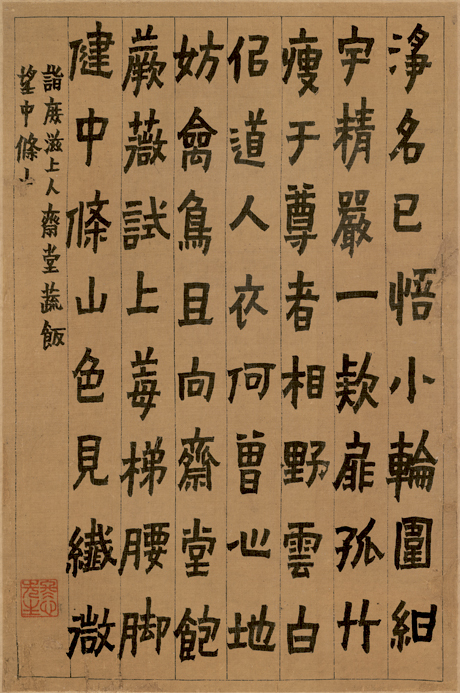 淨名已悟小輪圍紺
宇精嚴一欵扉孤竹
瘦于尊者相野雲白
佀道人衣何曾心地
妨禽鳥且向齋堂飽
蕨薇試上莓梯腰脚
健中條山色見纖微
詣滋上人齋堂蔬飯
望中條山
冬心先生